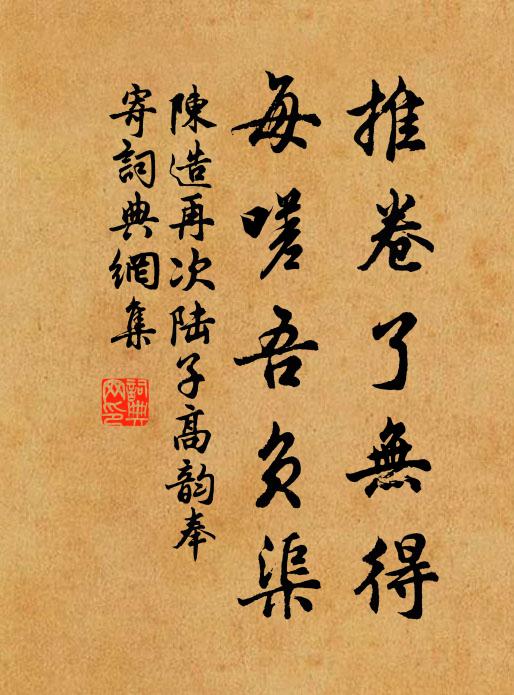 推卷了無得
每嗟吾負渠
陳造再次陸子高韵奉
寄詞典網集
詞典網印